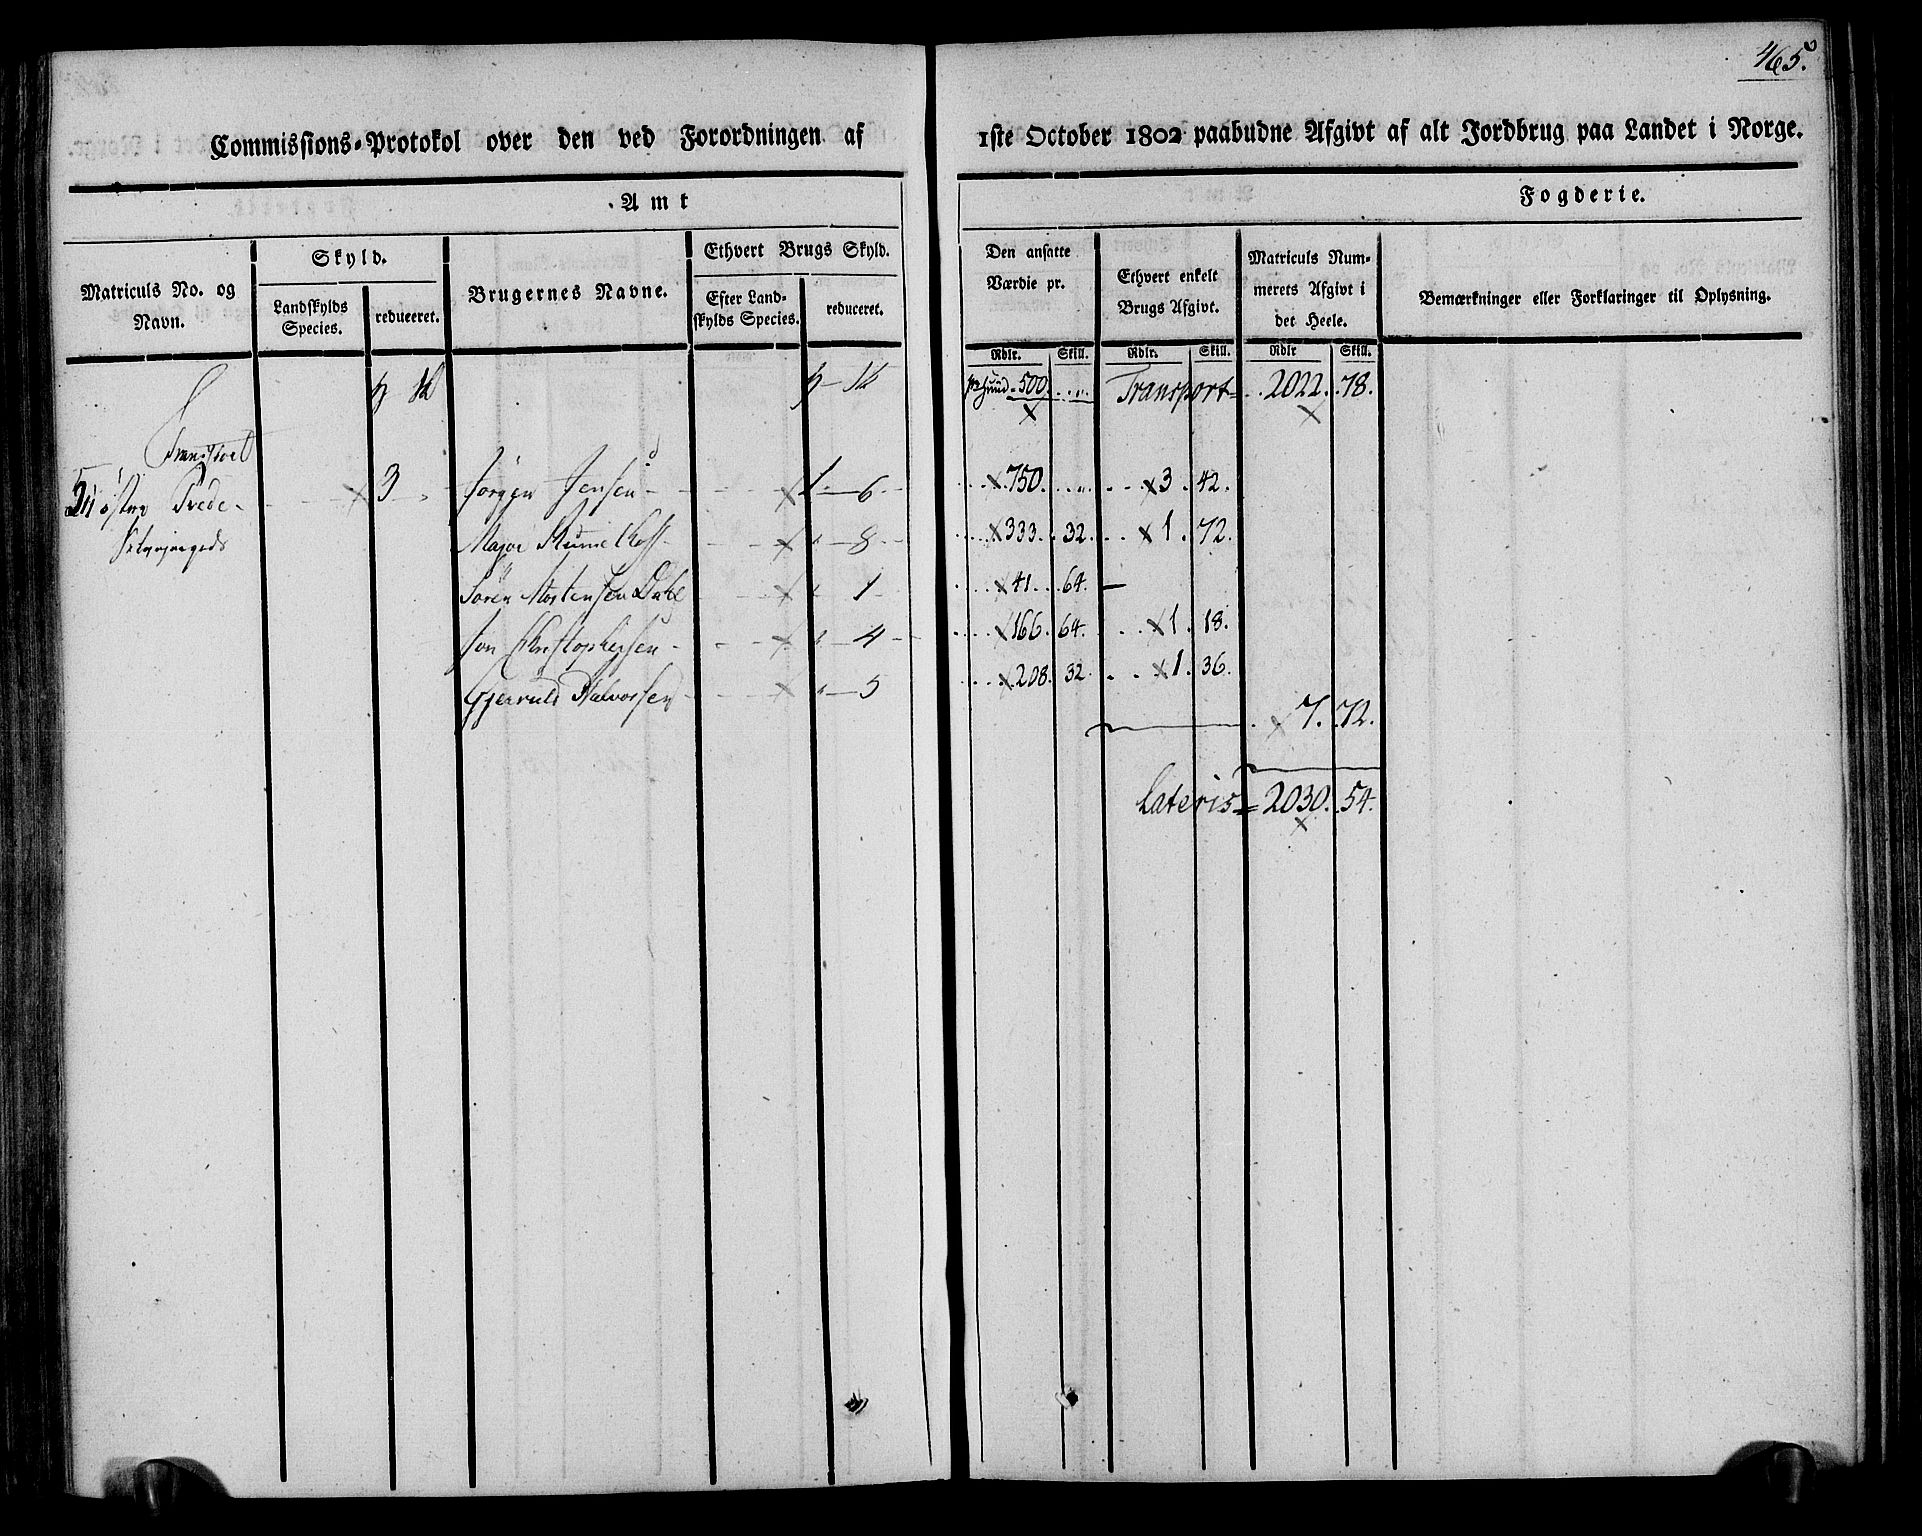 465.
Commissions-Protokol over den ved Forordningen af 1ste October 1802 paabudne Afgivt af alt Jordbrug paa Landet i Norge.
Amt Fogderie.
Matriculs No. og Navn.
Skyld.
Landskylds Species.
reduceret.
Brugernes Navne.
Ethvert Brugs Skyld.
Efter Landskylds Species.
reduceret.
Den ansatte Værdie pr.
Ethvert enkelt Brugs Afgivt.
Matriculs Nummerets Afgivt i det Heele.
Bemærkninger eller Forklaringer til Oplysning.
Rdlr. Skill. Rdlr. Skill. Rdlr Skill.
500 Transport 2022. 78.
Transport
3 Jørgen Jensen 1 6 750. 3. 42.
Major 8 333. 32. 1. 72.
Søren Mortensen 1 41. 64.
Jon Christophersen 4 166. 64. 1. 18.
Halvorsen 5 208. 32 1. 36.
7. 72.
Lateris = 2030. 54.